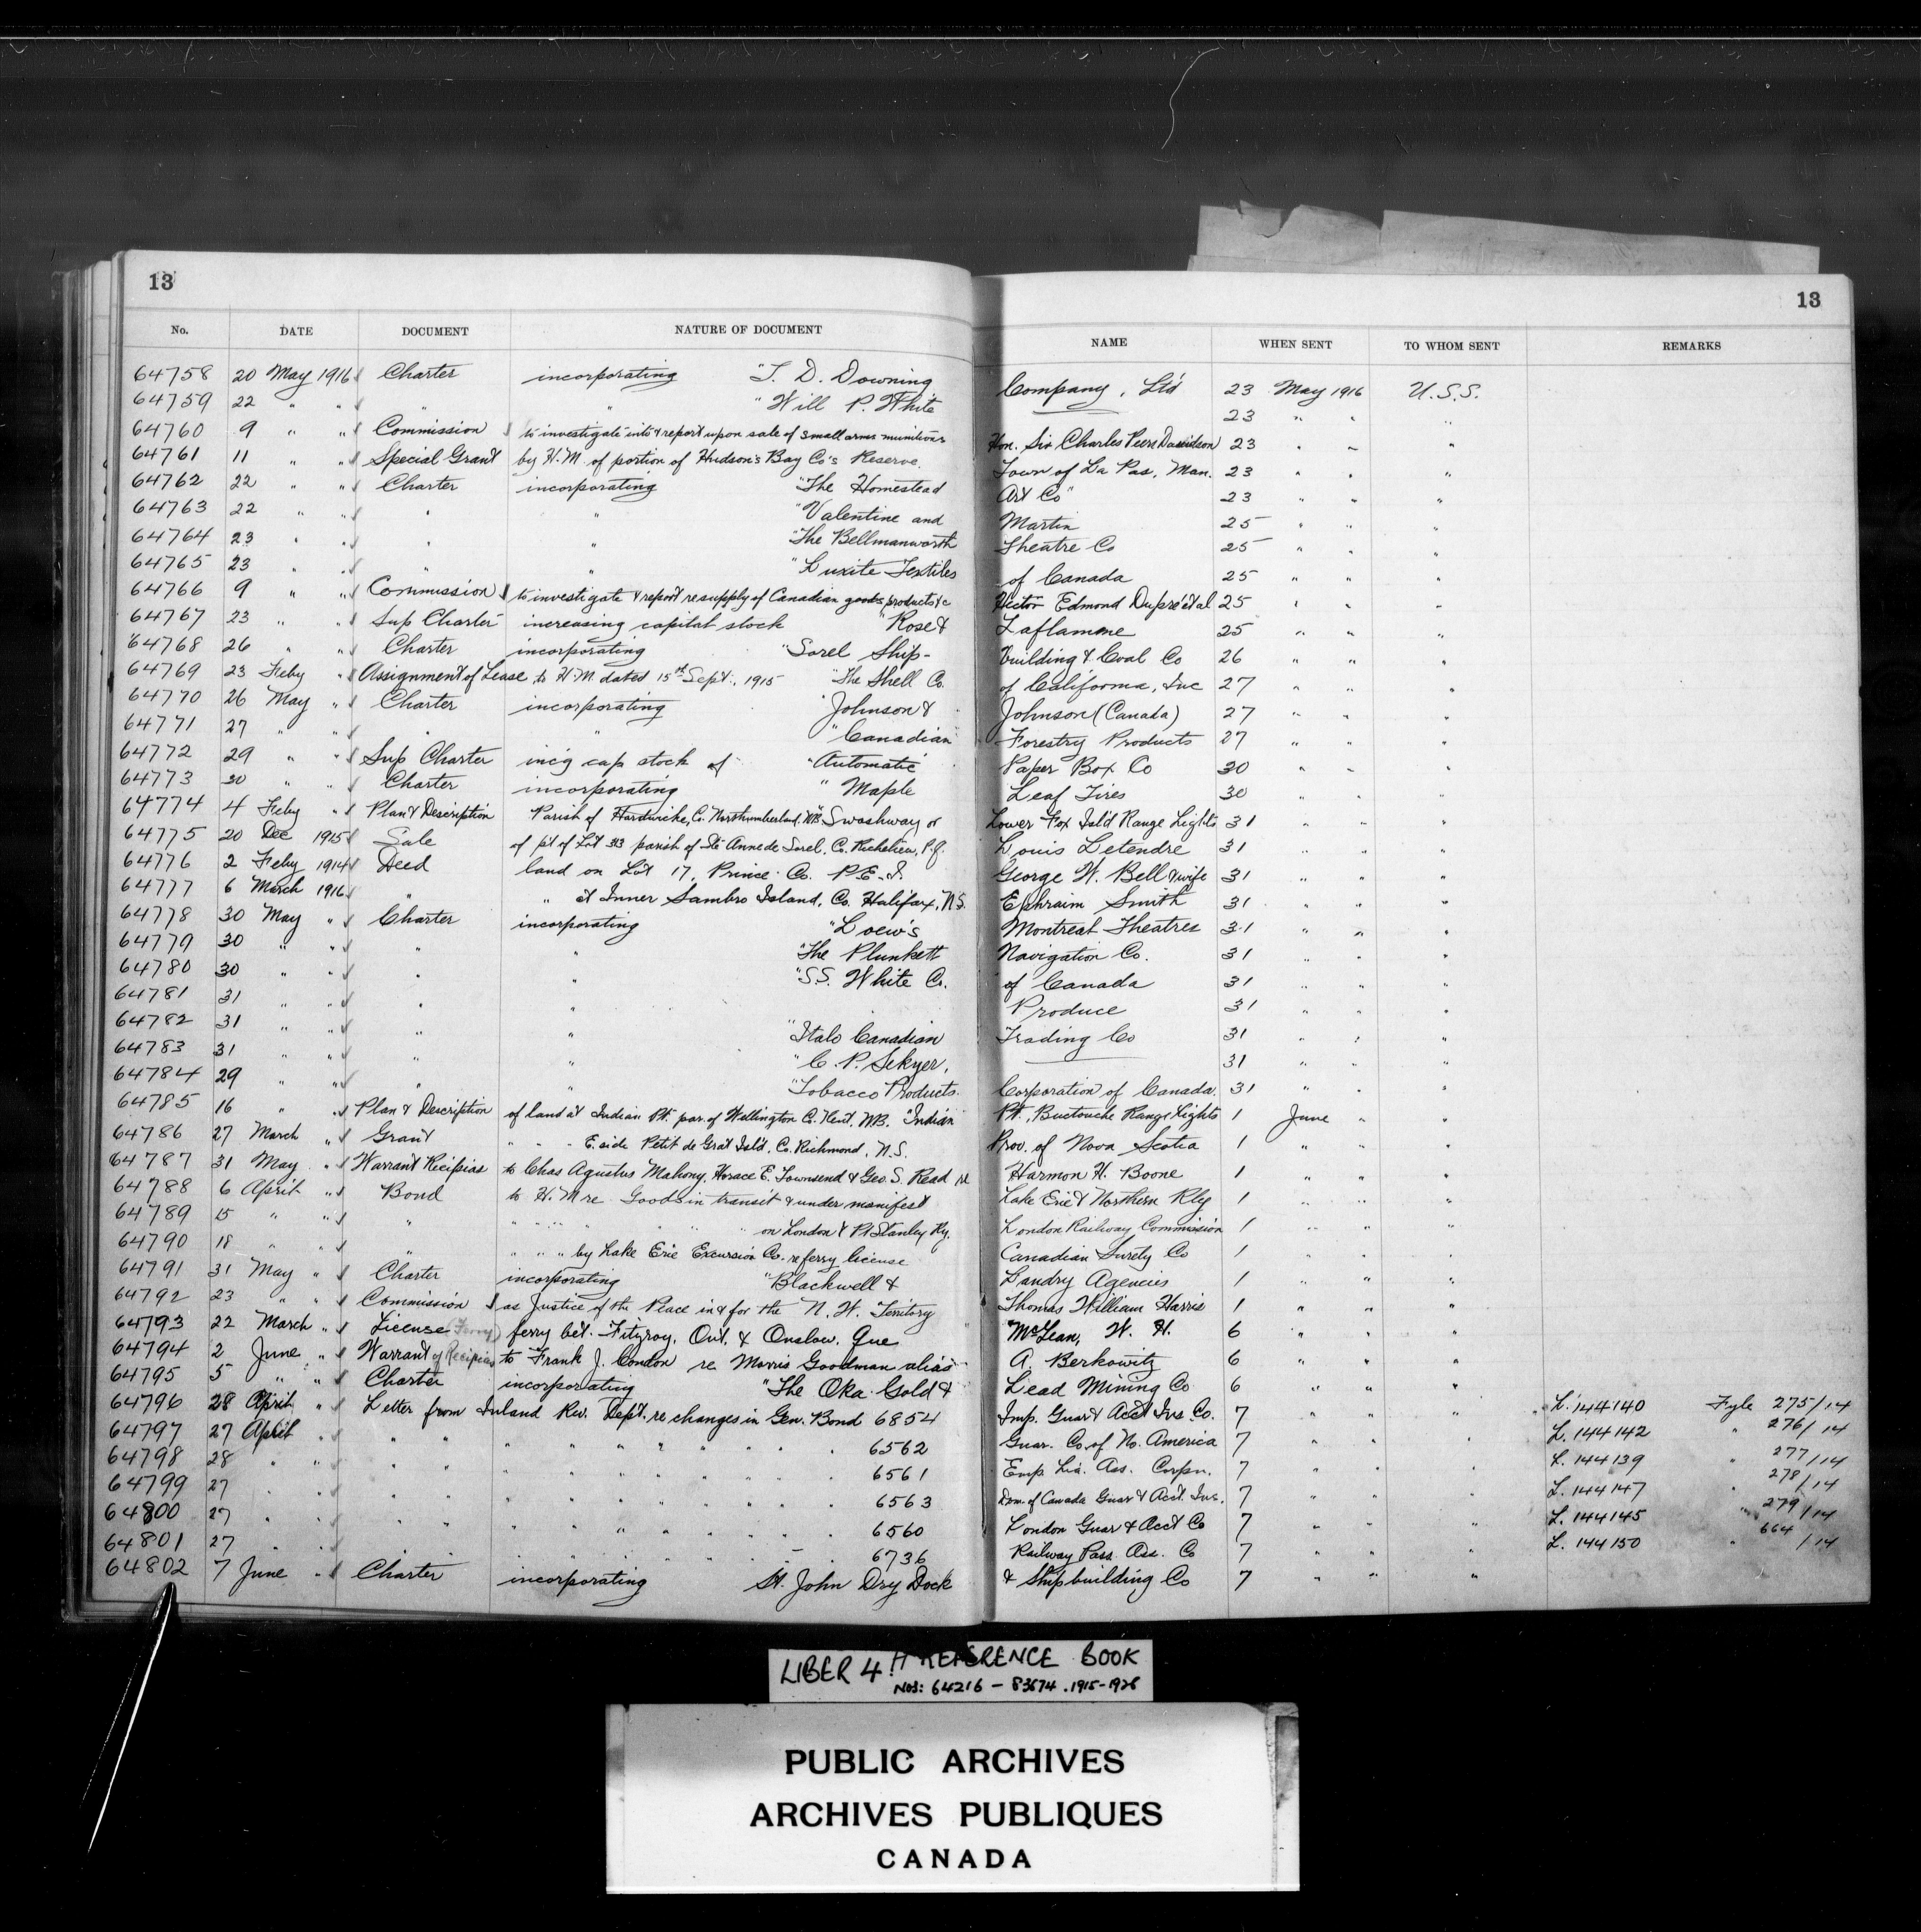 13
13
No. DATE DOCUMENT NATURE OF DOCUMENT NAME WHEN SENT TO WHOM SENT REMARKS
64758 20 May 1916 Charter incorporating "T. D. Downing Company, Ltd 23 May 1916 U.S.S.
64759 22 " " " " "Will P. White 23 " " "
64760 9 " " Commission to investigate into & report upon sale of small arms munitions Hon. Sir Charles Peers Davidson 23 " " "
64761 11 " " Special Grant by H.M. of portion of Hudson's Bay Co's Reserve. Town of La Pas, Man. 23 " " "
64762 22 " " Charter incorporating "The Homestead Art Co" 23 " " "
64763 22 " " " " "Valentine and Martin 25 " " "
64764 23 " " " " "The Bellmanworth Theatre Co 25 " " "
64765 23 " " " " "Luxite Textiles of Canada 25 " " "
64766 9 " " Commission to investigate & report re supply of Canadian goods, products &c Hector Edmond Dupré et al 25 " " "
64767 23 " " Sup Charter increasing capital stock "Rose & Laflamme 25 " " "
64768 26 " " Charter incorporating "Sorel Ship- building & Coal Co 26 " " "
64769 23 Feby " Assignment of Lease to H.M. dated 15th Sept., 1915 "The Shell Co. of California, Inc 27 " " "
64770 26 May " Charter incorporating "Johnson & Johnson (Canada) 27 " " "
64771 27 " " " " "Canadian Forestry Products 27 " " "
64772 29 " " Sup Charter inc'g cap stock of "Automatic Paper Box Co 30 " " "
64773 30 " " Charter incorporating "Maple Leaf Tires 30 " " "
64774 4 Feby " Plan & Description Parish of Hardwicke, Co. Northumberland, N.B. Swashway or Lower Fox Isl'd Range Lights 31 " " "
64775 20 Dec 1915 Sale of pt of Lot 313 parish of Ste Anne de Sorel, Co. Richelieu, P.Q. Louis Letendre 31 " " "
64776 2 Feby 1914 Deed land on Lot 17, Prince Co. P.E.I. George W. Bell & wife 31 " " "
64777 6 March 1916 " " at Inner Sambro Island, Co. Halifax, N.S. Ephraim Smith 31 " " "
64778 30 May " Charter incorporating "Loew's Montreal Theatres 31 " " "
64779 30 " " " " "The Plunkett Navigation Co. 31 " " "
64780 30 " " " " "S.S. White Co. of Canada 31 " " "
64781 31 " " " " Produce 31 " " "
64782 31 " " " " "Italo Canadian Trading Co 31 " " "
64783 31 " " " " "C. P. Sekyer, 31 " " "
64784 29 " " " " "Tobacco Products Corporation of Canada. 31 " " "
64785 16 " " Plan & Description of land at Indian Pt. par. of Wellington Co. Kent, N.B. "Indian Pt., Buctouche Range Lights 1 June " "
64786 27 March " Grant " " " E. side Petit de Grat Isl'd, Co. Richmond, N.S. Prov. of Nova Scotia 1 " " "
64787 31 May " Warrant Recipias to Chas Agustus Mahony, Horace E. Townsend & Geo. S. Read re Harmon H. Boone 1 " " "
64788 6 April " Bond to H.M re Goods in transit & under manifest Lake Erie & Northern Rly 1 " " "
64789 15 " " " " " " " " " on London & Pt Stanley Ry. London Railway Commission 1 " " "
64790 18 " " " " " " by Lake Erie Excursion Co. re ferry license Canadian Surety Co 1 " " "
64791 31 May " Charter incorporating "Blackwell & Landry Agencies 1 " " "
64792 23 " " Commission as Justice of the Peace in & for the N. W. Territory Thomas William Harris 1 " " "
64793 22 March " License (Ferry) ferry bet. Fitzroy, Ont. & Onslow, Que McLean, W. H. 6 " " "
64794 2 June " Warrant of Recipias to Frank J. Condon re Morris Goodman alias A. Berkowitz 6 " " "
64795 5 " " Charter incorporating "The Oka Gold & Lead Mining Co 6 " " "
64796 28 April " Letter from Inland Rev. Dept. re changes in Gen. Bond 6854 Imp. Guar & Acct Ins. Co. 7 " " " L. 144140 Fyle 275/14
64797 27 April " " " " " " " " " " 6562 Guar. Co. of No. America 7 " " " L. 144142 " 276/14
64798 28 " " " " " " " " " " " 6561 Emp. Lia. Ass. Corpn. 7 " " " L. 144139 " 277/14
64799 27 " " " " " " " " " " " 6563 Dom. of Canada Guar & Acct. Ins. 7 " " " L. 144147 " 278/14
64800 27 " " " " " " " " " " " 6560 London Guar & Acct Co 7 " " " L. 144145 " 279/14
64801 27 " " " " " " " " " 6736 Railway Pass. Ass. Co 7 " " " L. 144150 " 664/14
64802 7 June " Charter incorporating St. John Dry Dock & Shipbuilding Co 7 " " "
LIBER 4 H REFERENCE BOOK
NOS: 64216 - 83674. 1915-1926
PUBLIC ARCHIVES
ARCHIVES PUBLIQUES
CANADA